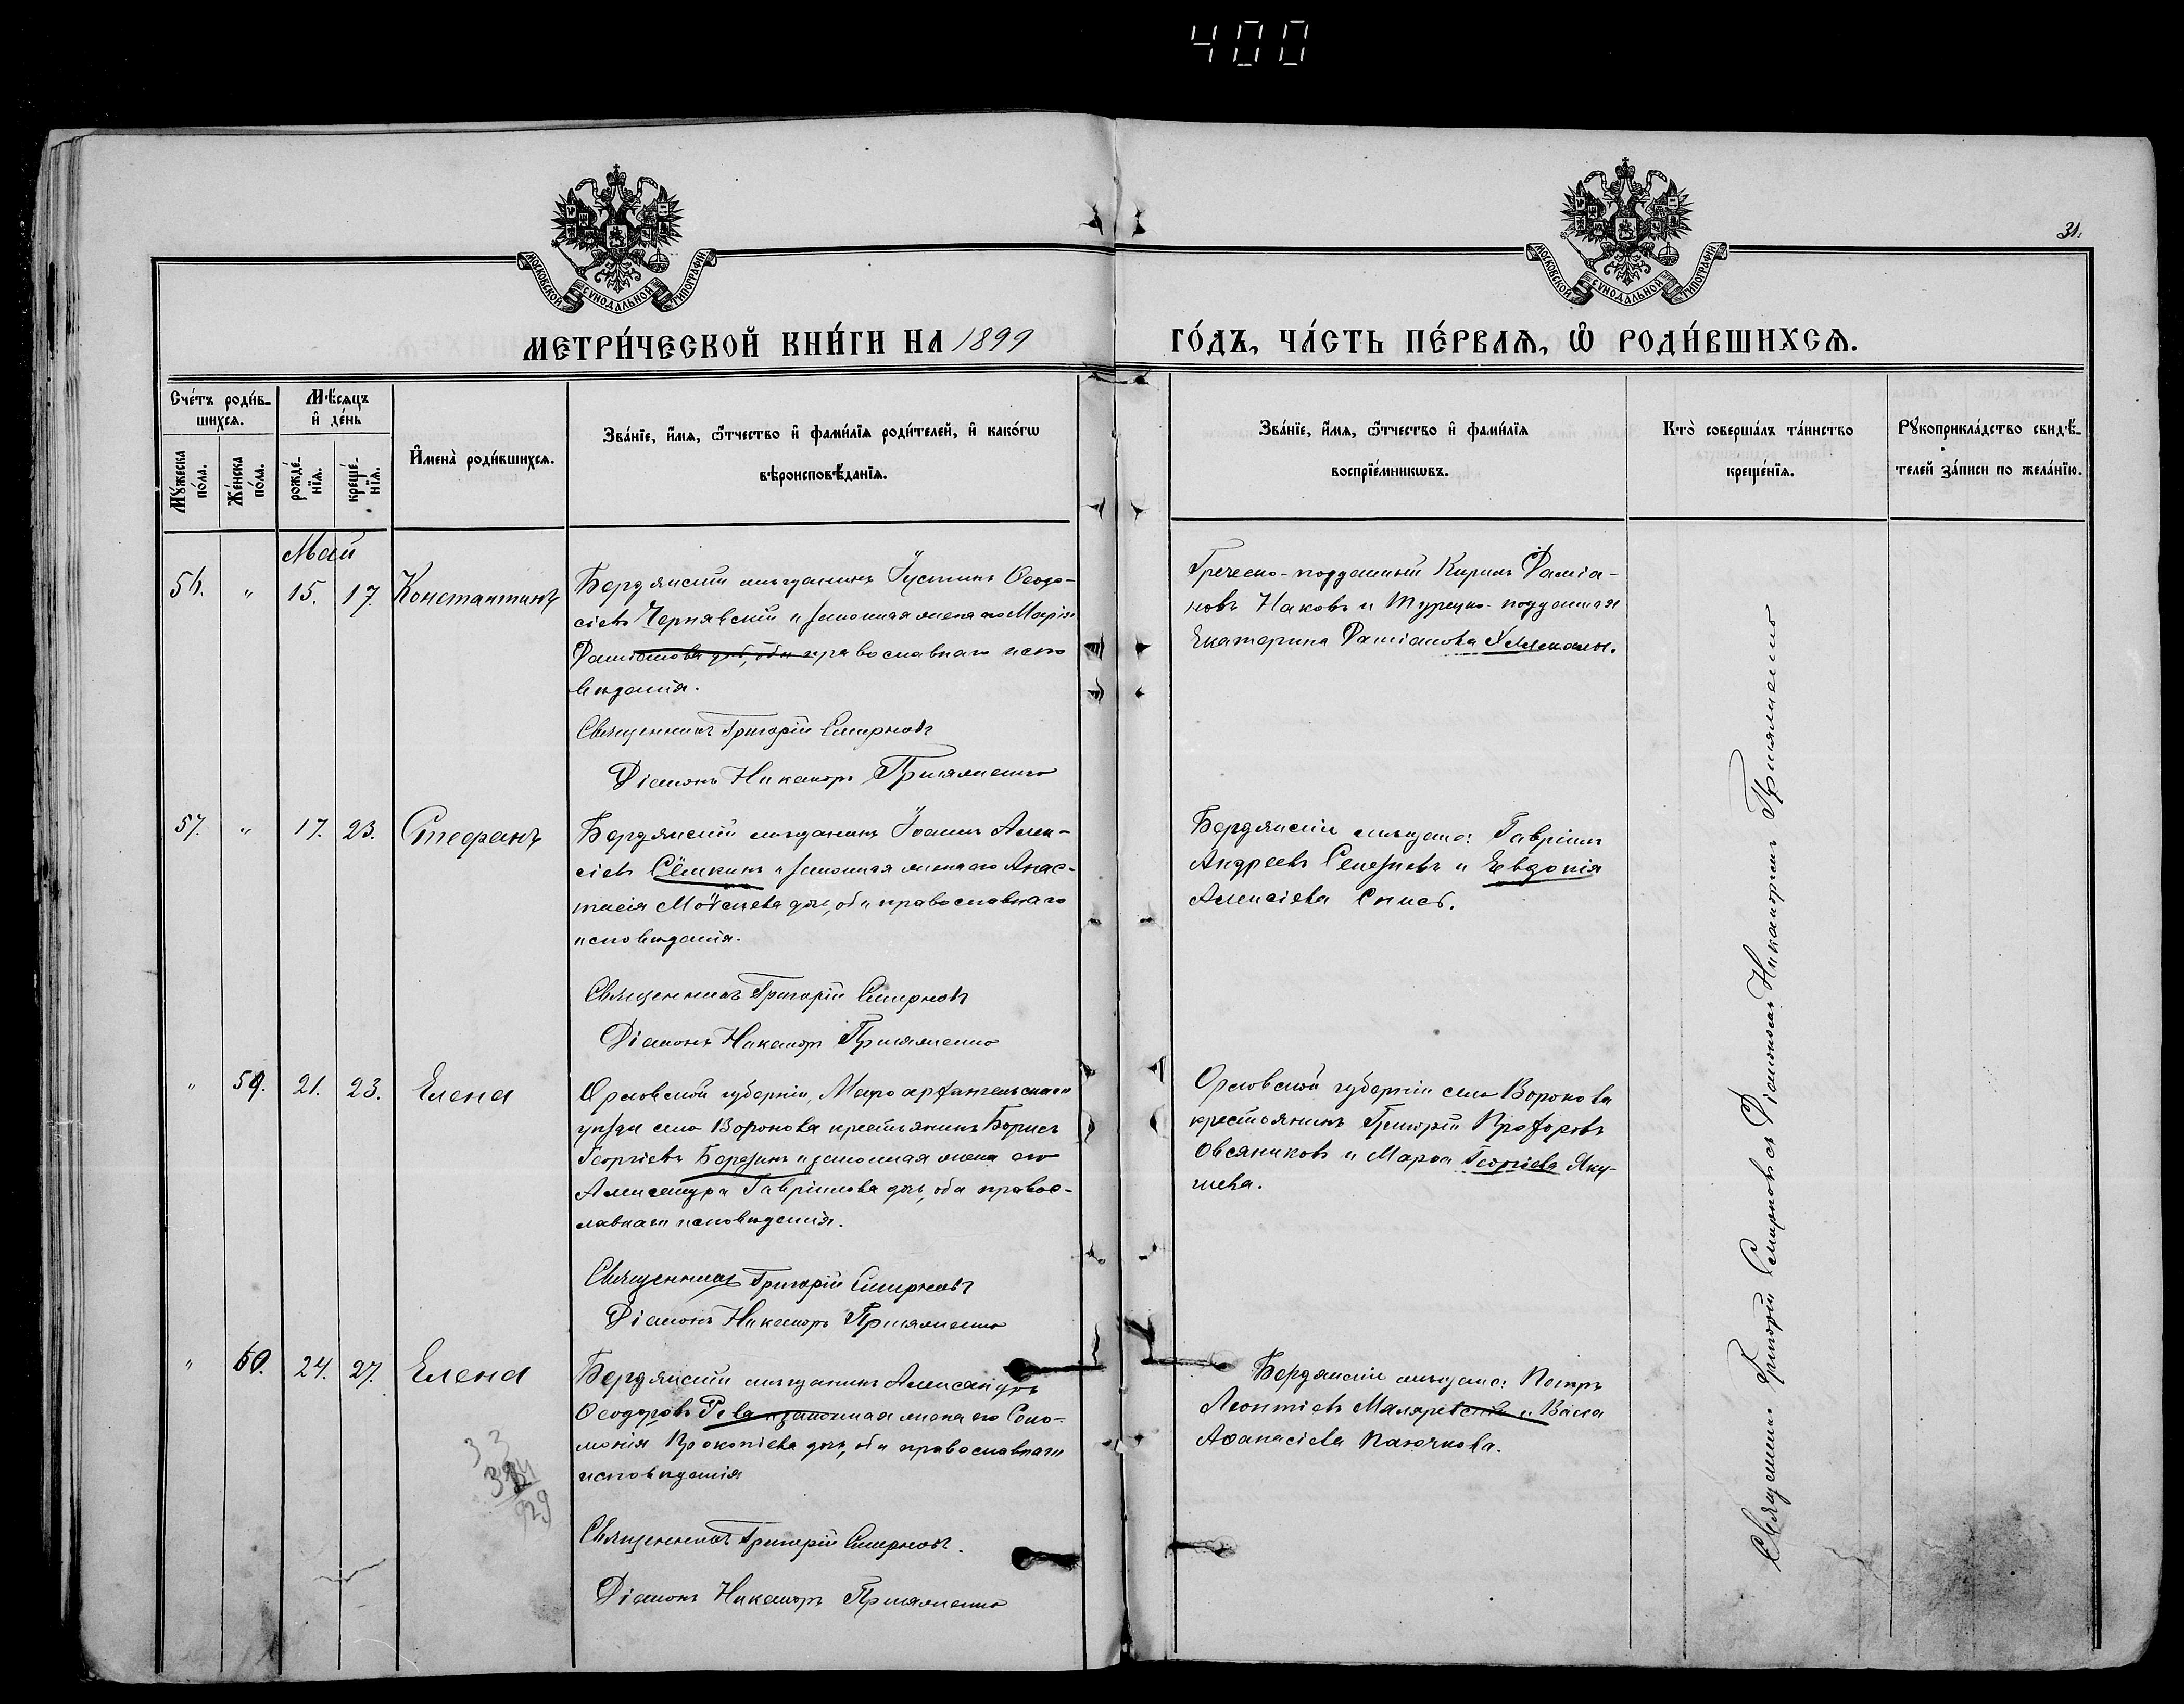 400
МОСКОВСКОЙ СѴНОДАЛЬНОЙ ТИПОГРАФІИ
МОСКОВСКОЙ СѴНОДАЛЬНОЙ ТИПОГРАФІИ
31.
МЕТРИ́ЧЕСКОЙ КНИ́ГИ НА 1899
ГО́ДЪ, ЧА́СТЬ ПЕ́РВАѦ, Ѡ҆ РОДИ́ВШИХСѦ.
Сче́тъ роди́в-
шихсѧ.
Мꙋ́жеска
по́ла.
Же́нска
по́ла.
Мѣ́сѧцъ
и҆ де́нь
рожде́-
нїѧ.
креще́-
нїѧ.
И҆мена̀ роди́вшихсѧ.
Зва́нїе, и҆́мѧ, ѻ҆́тчество и҆ фами́лїѧ роди́телей, и҆ како́гѡ
вѣроисповѣ́данїѧ.
Зва́нїе, и҆́мѧ, ѻ҆́тчество и҆ фами́лїѧ
воспрїе́мникѡвъ.
Кто̀ соверша́лъ та́инство
креще́нїѧ.
Рꙋкоприкла́дство свидѣ́-
телей за́писи по жела́нїю.
Май
56. " 15. 17. Константинъ
Бердянскій мѣщанинъ Іустинъ Ѳеодо-
сіевъ Чернявскій и законная жена его Марія
Даміанова доч, оба православнаго испо
вѣданія.
Священникъ Григорій Смирновъ
Діаконъ Никаноръ
Греческо-подданный Кирилъ Даміа-
новъ Наковъ и Турецко-подданная
Екатерина Даміанова
57. " 17. 23. Стефанъ
Бердянскій мѣщанинъ Іоаннъ Алек-
сіевъ Сёмкинъ и законная жена его Анас-
тасія Моѵсеева доч, оба православнаго
исповѣданія.
Священникъ Григорій Смирновъ
Діаконъ Никаноръ
Бердянскіе мѣщане: Гавріилъ
Андреевъ Селезневъ и Евдокія
Алексіева
" 59. 21. 23. Елена
Орловской губерніи, Малоархангельскаго
уѣзда села Воронова крестьянинъ Борисъ
Георгіевъ Березинъ и законная жена его
Александра Гавріилова доч, оба правос-
лавнаго исповѣданія.
Священникъ Григорій Смирновъ
Діаконъ Никаноръ
Орловской губерніи села Воронова
крестьянинъ Григорій Прохоровъ
Овсяниковъ и Марѳа Георгіева Яку-
шева.
" 60. 24. 27. Елена
Бердянскій мѣщанинъ Александръ
Ѳеодоровъ Рева и законная жена его Соло-
монія Прокопіева доч, оба православнаго
исповѣданія
Священникъ Григорій Смирновъ.
Діаконъ Никаноръ
Бердянскіе мѣщане: Петръ
Леонтіевъ Маляревскій и Васса
Аѳанасіева
Священникъ Григорій Смирновъ съ Діакономъ Никаноромъ